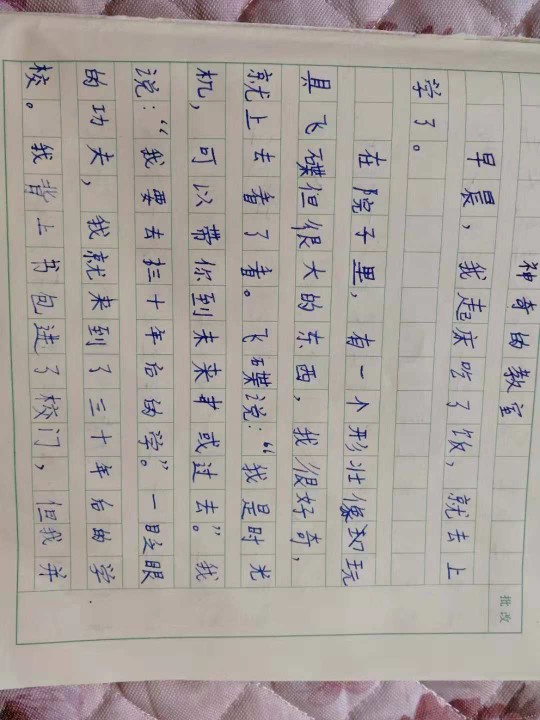 神奇的教室
早晨，我起床吃了饭，就去上
学了。
在院子里，有一个形壮像玩
具飞碟但很大的东西，我很好奇，
就上去看了看。飞碟说：“我是时光
机，可以带你到未来或过去。”我
说：“我要去拦十年后的学。”一眨眼
的功夫，我就来到了三十年后的学
校。我背上书包进了校门，但我并
批改